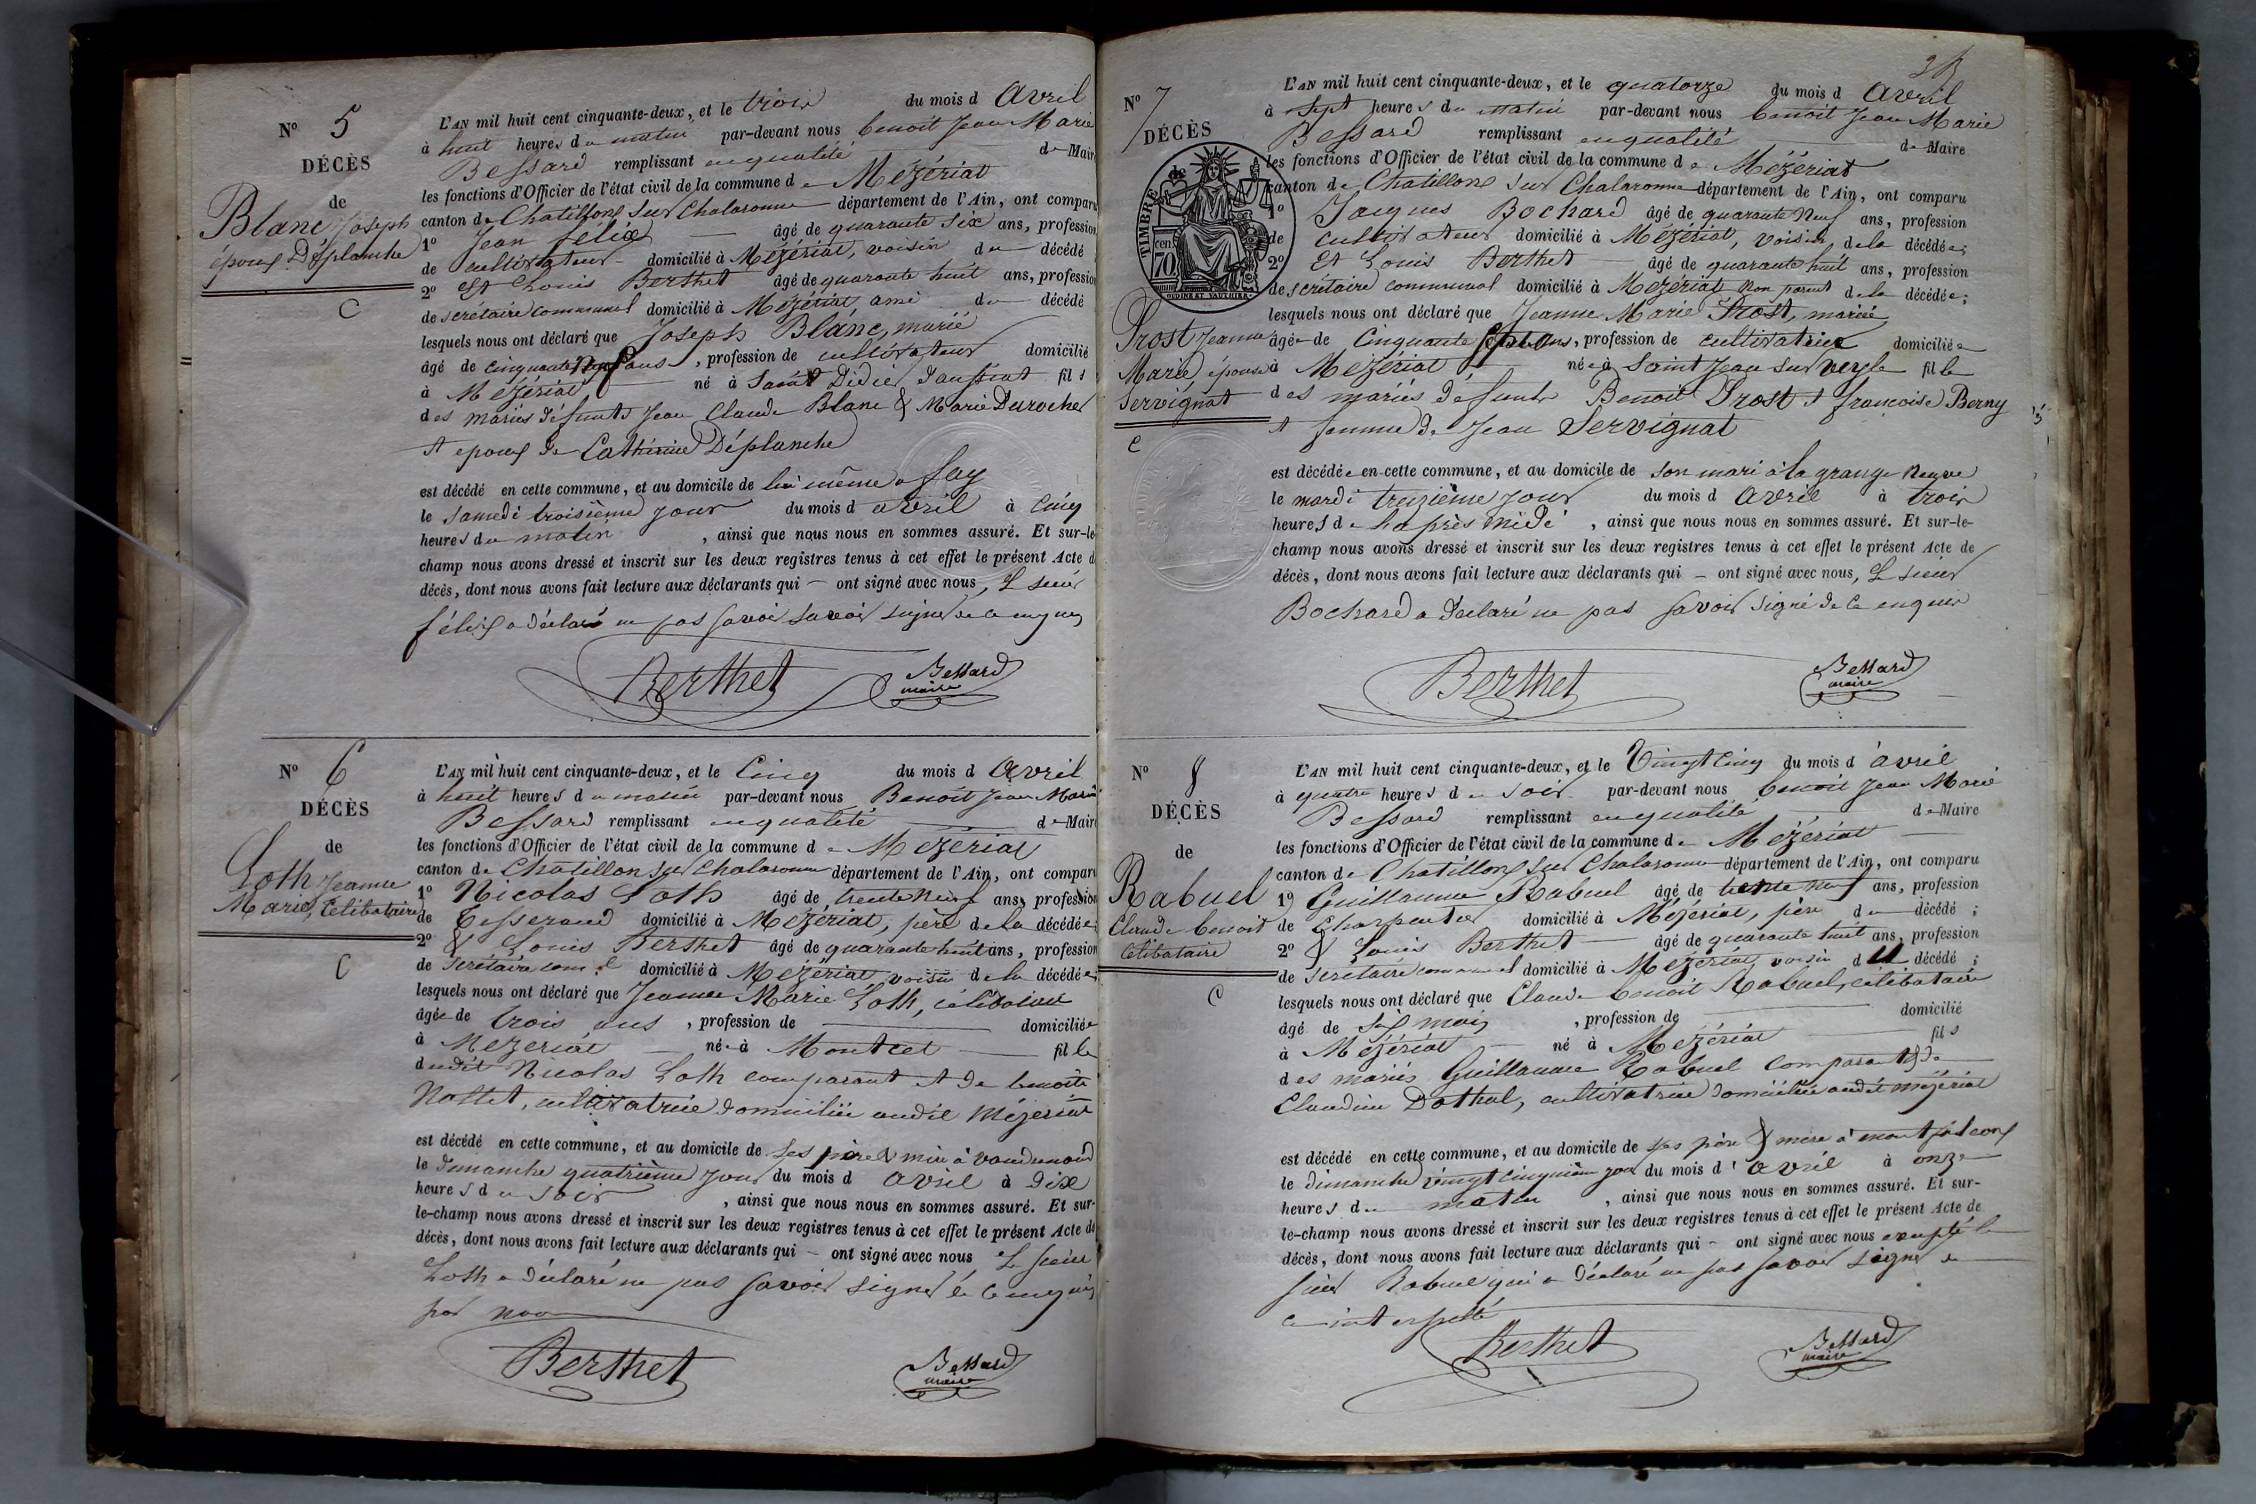 N° 5
DÉCÈS
de
Blanc Joseph
époux Déplanche
C
L'AN mil huit cent cinquante-deux, et le trois du mois d avril
à huit heures du matin par-devant nous benoit Jean Marie
Bessard remplissant en qualité de Maire
les fonctions d'Officier de l'état civil de la commune de Mézériat
canton de Chatillon sur Chalaronne département de l'Ain, ont comparu
1° Jean félix âgé de quarante six ans, profession
de cultivateur domicilié à Mézériat, voisin du décédé
2° Et Louis Berthet âgé de quarante huit ans, profession
de secrétaire communal domicilié à Mézériat, ami du décédé
lesquels nous ont déclaré que Joseph Blanc, marié
âgé de cinquante neuf ans, profession de cultivateur domicilié
à Mézériat né à Saint Didier d'aussiat fils
des mariés défunts Jean Claude Blanc & Marie Durocher
et epoux de Cathérine Déplanche
est décédé en cette commune, et au domicile de lui même a fay
le samedi troisième jour du mois d avril à cinq
heures du matin, ainsi que nous nous en sommes assuré. Et sur-le-
champ nous avons dressé et inscrit sur les deux registres tenus à cet effet le présent Acte de
décès, dont nous avons fait lecture aux déclarants qui — ont signé avec nous, Le sieur
félix a déclaré ne pas savoir savoir signer de ce enquis
Berthet Bessard
maire
N° 6
DÉCÈS
de
Loth Jeanne
Marie, Célibataire
C
L'AN mil huit cent cinquante-deux, et le Cinq du mois d avril
à huit heures du matin par-devant nous Benoit Jean Marie
Bessard remplissant en qualité de Maire
les fonctions d'Officier de l'état civil de la commune de Mézériat
canton de Chatillon sur Chalaronne département de l'Ain, ont comparu
1° Nicolas Loth âgé de trente neuf ans, profession
de Tisserand domicilié à Mézériat, père de la décédée;
2° & Louis Berthet âgé de quarante huit ans, profession
de secrétaire com.l domicilié à Mézériat voisin de la décédée;
lesquels nous ont déclaré que Jeanne Marie Loth, célibataire
âgée de trois ans, profession de domiciliée
à Mézériat née à Montcet fille
dudit Nicolas Loth comparant et de benoite
Nallet, cultivatrice domiciliée audit Mézériat
est décédé en cette commune, et au domicile de ses père & mère à
le dimanche quatrième jour du mois d avril à dix
heures du soir, ainsi que nous nous en sommes assuré. Et sur-
le-champ nous avons dressé et inscrit sur les deux registres tenus à cet effet le présent Acte de
décès, dont nous avons fait lecture aux déclarants qui — ont signé avec nous Le sieur
Loth a déclaré ne pas savoir signer de ce enquis
par nous
Berthet Bessard
maire
N° 7
DÉCÈS
de
TIMBRE
cen.
70
OUDINÉ ET VAUTHIER
Prost Jeanne
Marie épouse
Servignat
C
L'AN mil huit cent cinquante-deux, et le quatorze du mois d avril
à sept heures du matin par-devant nous benoit Jean Marie
Bessard remplissant en qualité de Maire
les fonctions d'Officier de l'état civil de la commune de Mézériat
canton de Chatillon sur Chalaronne département de l'Ain, ont comparu
1° Jacques Bochard âgé de quarante neuf ans, profession
de cultivateur domicilié à Mézériat, voisin de la décédée;
2° Et Louis Berthet âgé de quarante huit ans, profession
de secrétaire communal domicilié à Mézériat non parent de la décédée;
lesquels nous ont déclaré que Jeanne Marie Prost, mariée
âgée de Cinquante sept ans, profession de cultivatrice domiciliée
à Mézériat née à Saint Jean sur veyle fille
des mariés défunts Benoit Prost et françoise Berny
et femme de Jean Servignat
est décédée en cette commune, et au domicile de son mari à la grange neuve
le mardi treizième jour du mois d avril à trois
heures de l'après midi, ainsi que nous nous en sommes assuré. Et sur-le-
champ nous avons dressé et inscrit sur les deux registres tenus à cet effet le présent Acte de
décès, dont nous avons fait lecture aux déclarants qui — ont signé avec nous, Le sieur
Bochard a déclaré ne pas savoir signé de ce enquis
Berthet Bessard
maire
N° 8
DÉCÈS
de
Rabuel
Claude benoit
Célibataire
C
L'AN mil huit cent cinquante-deux, et le Vingt cinq du mois d avril
à quatre heures du soir par-devant nous benoit Jean Marie
Bessard remplissant en qualité de Maire
les fonctions d'Officier de l'état civil de la commune de Mézériat
canton de Chatillon sur Chalaronne département de l'Ain, ont comparu
1° Guillaume Rabuel âgé de trente neuf ans, profession
de Charpentier domicilié à Mézériat, père du décédé;
2° & Louis Berthet âgé de quarante huit ans, profession
de secrétaire communal domicilié à Mézériat, voisin du décédé;
lesquels nous ont déclaré que Claude benoit Rabuel, célibataire
âgé de mois, profession de domicilié
à Mézériat né à Mézériat fils
des mariés Guillaume Rabuel comparant & de
Claudine Dothal, cultivatrice domiciliée audit mézériat
est décédé en cette commune, et au domicile de ses père & mère à
le dimanche vingt cinquième jour du mois d'avril à onze
heures du matin, ainsi que nous nous en sommes assuré. Et sur-
le-champ nous avons dressé et inscrit sur les deux registres tenus à cet effet le présent Acte de
décès, dont nous avons fait lecture aux déclarants qui — ont signé avec nous excepté le
sieur Rabuel qui a déclaré ne pas savoir signer de
ce interpellé
Berthet Bessard
maire